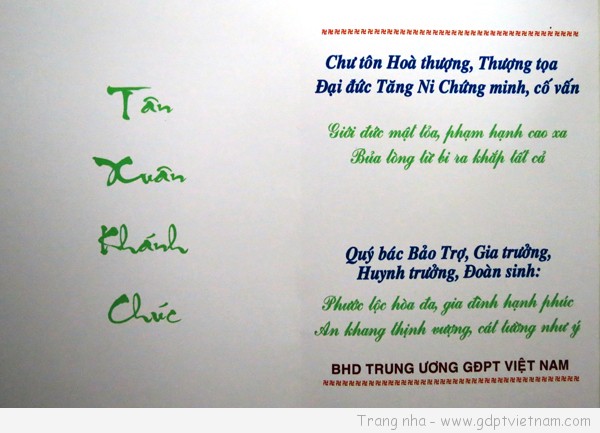 Tân
Xuân
Khánh
Chúc
Chư tôn Hoà thượng, Thượng tọa
Đại đức Tăng Ni Chứng minh, cố vấn
Giới đức mật tỏa, phạm hạnh cao xa
Bủa lòng từ bi ra khắp tất cả
Quý bác Bảo Trợ, Gia trưởng,
Huynh trưởng, Đoàn sinh:
Phước lộc hòa đa, gia đình hạnh phúc
An khang thịnh vượng, cát tường như ý
BHD TRUNG ƯƠNG GĐPT VIỆT NAM
Trang nha - www.gdptvietnam.com